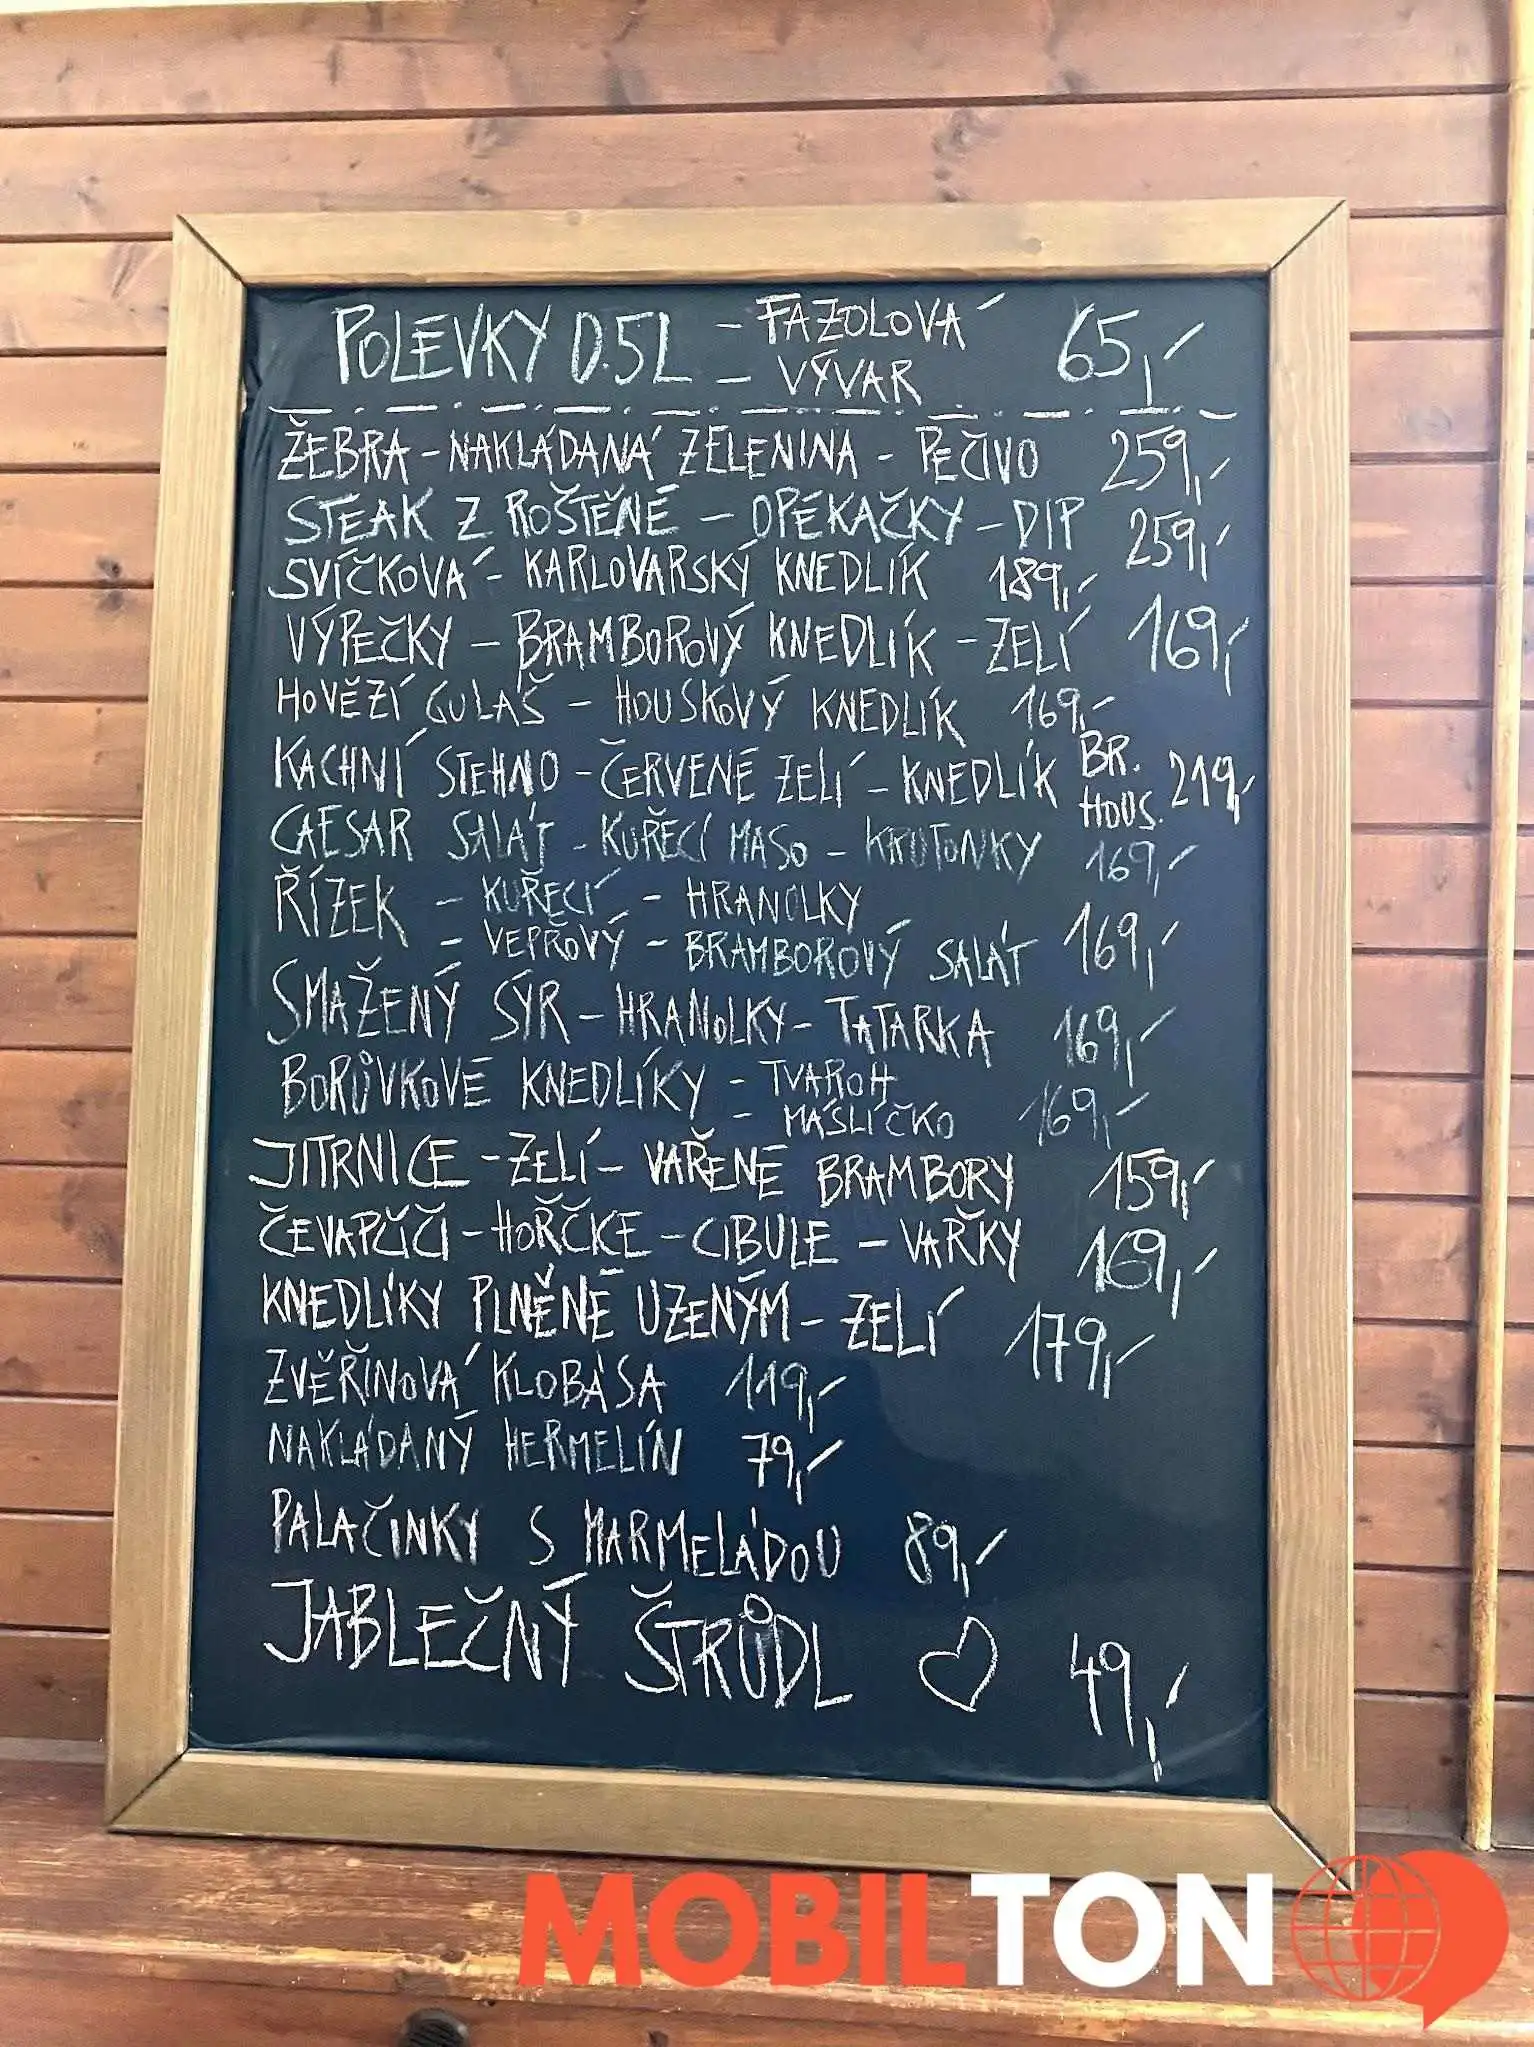 POLÉVKY 0.5L – FAZOLOVÁ 65,-
– VÝVAR
ŽEBRA – NAKLÁDANÁ ZELENINA – PEČIVO 259,-
STEAK Z ROŠTĚNÉ – OPÉKAČKY – DIP 259,-
SVÍČKOVÁ – KARLOVARSKÝ KNEDLÍK 189,-
VÝPEČKY – BRAMBOROVÝ KNEDLÍK – ZELÍ 169,-
HOVĚZÍ GULÁŠ – HOUSKOVÝ KNEDLÍK 169,-
KACHNÍ STEHNO – ČERVENÉ ZELÍ – KNEDLÍK BR. HOUS. 219,-
CAESAR SALÁT – KUŘECÍ MASO – KRUTONKY 169,-
ŘÍZEK – KUŘECÍ – HRANOLKY
– VEPŘOVÝ – BRAMBOROVÝ SALÁT 169,-
SMAŽENÝ SÝR – HRANOLKY – TATARKA 169,-
BORŮVKOVÉ KNEDLÍKY – TVAROH
– MÁSLÍČKO 169,-
JITRNICE – ZELÍ – VAŘENÉ BRAMBORY 159,-
ČEVAPČIČI – HOŘČICE – CIBULE – VAŘKY 169,-
KNEDLÍKY PLNĚNÉ UZENÝM – ZELÍ 179,-
ZVĚŘINOVÁ KLOBÁSA 119,-
NAKLÁDANÝ HERMELÍN 79,-
PALAČINKY S MARMELÁDOU 89,-
JABLEČNÝ ŠTRŮDL 49,-
MOBILTON